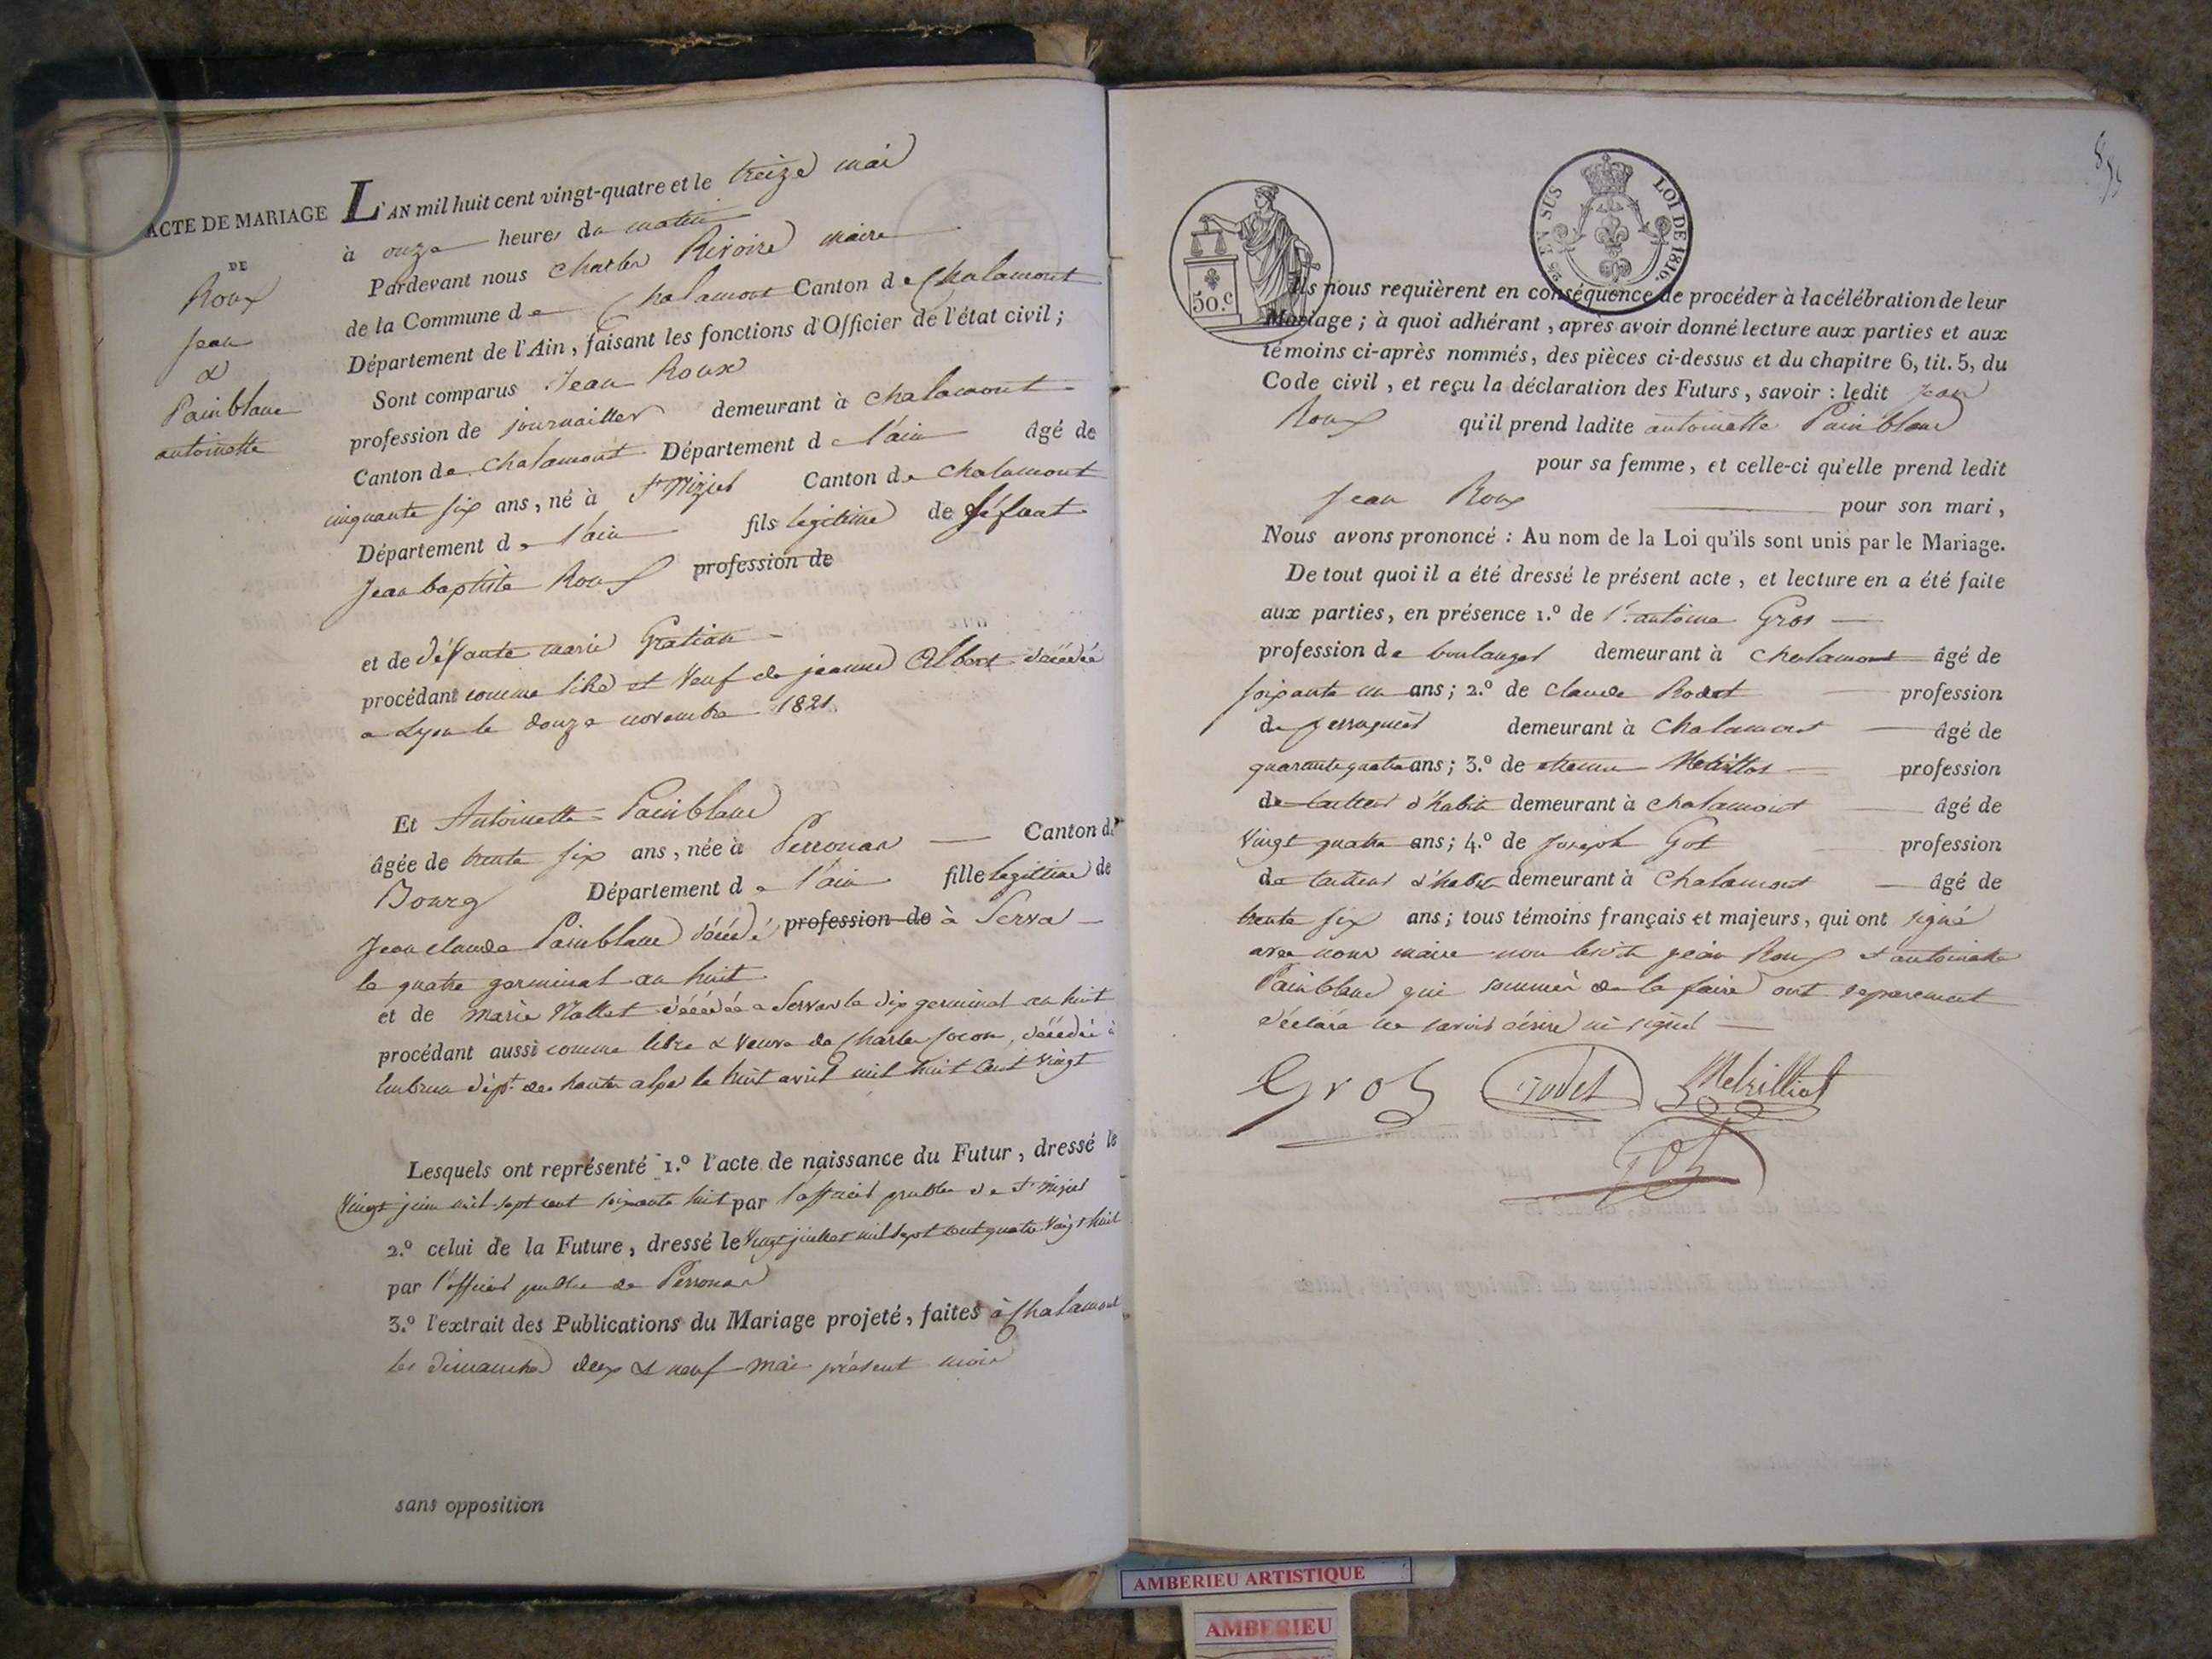 ACTE DE MARIAGE
DE
Roux
Jean
&
Painblanc
antoinette
L'AN mil huit cent vingt-quatre et le treize mai
à onze heures du matin
Pardevant nous Charles Rivoire maire
de la Commune de Chalamont Canton de Chalamont
Département de l'Ain, faisant les fonctions d'Officier de l'état civil;
Sont comparus Jean Roux
profession de journailler demeurant à Chalamont
Canton de Chalamont Département de l'ain âgé de
cinquante six ans, né à St Nizier Canton de Chalamont
Département de l'ain fils legitime de défunt
Jean baptiste Roux profession de
et de défunte marie Gratian
procédant comme libre et Veuf de jeanne Albert décédée
a Lyon le douze novembre 1821.
Et Antoinette Painblanc
âgée de trente six ans, née à Perronas Canton de
Bourg Département de l'ain fille legitime de
Jean claude Painblanc décédé profession de à Servas
le quatre germinal an huit
et de marie Nallet décédée a Servas le dix germinal an huit
procédant aussi comme libre & Veuve de Charles Jocon, décédé à
Embrun dépt. des hautes alpes le huit avril mil huit cent vingt
Lesquels ont représenté 1.º l'acte de naissance du Futur, dressé le
Vingt juin mil sept cent soixante huit par l'officier public de St nizier
2.º celui de la Future, dressé le Vingt juillet mil sept cent quatre vingt huit
par l'officier public de Perronas
3.º l'extrait des Publications du Mariage projeté, faites à Chalamont
les dimanches deux & neuf mai présent mois
sans opposition
50.c
EN SUS
LOI DE 1816.
Ils nous requièrent en conséquence de procéder à la célébration de leur
Mariage; à quoi adhérant, après avoir donné lecture aux parties et aux
témoins ci-après nommés, des pièces ci-dessus et du chapitre 6, tit. 5, du
Code civil, et reçu la déclaration des Futurs, savoir: ledit Jean
Roux qu'il prend ladite antoinette Painblanc
pour sa femme, et celle-ci qu'elle prend ledit
Jean Roux pour son mari,
Nous avons prononcé: Au nom de la Loi qu'ils sont unis par le Mariage.
De tout quoi il a été dressé le présent acte, et lecture en a été faite
aux parties, en présence 1.º de Sr. antoine Gros
profession de boulanger demeurant à Chalamont âgé de
soixante un ans; 2.º de Claude Rodet profession
de perruquier demeurant à Chalamont âgé de
quarante quatre ans; 3.º de etienne Metrillot profession
de tailleur d'habits demeurant à Chalamont âgé de
Vingt quatre ans; 4.º de Joseph Got profession
de tailleur d'habits demeurant à Chalamont âgé de
trente six ans; tous témoins français et majeurs, qui ont signé
avec nous maire non lesdits jean Roux & antoinette
Painblanc qui sommés de le faire ont separement
déclaré ne savoir écrire ni signer
Gros Rodet Metrilliot
Got
AMBERIEU ARTISTIQUE
AMBERIEU